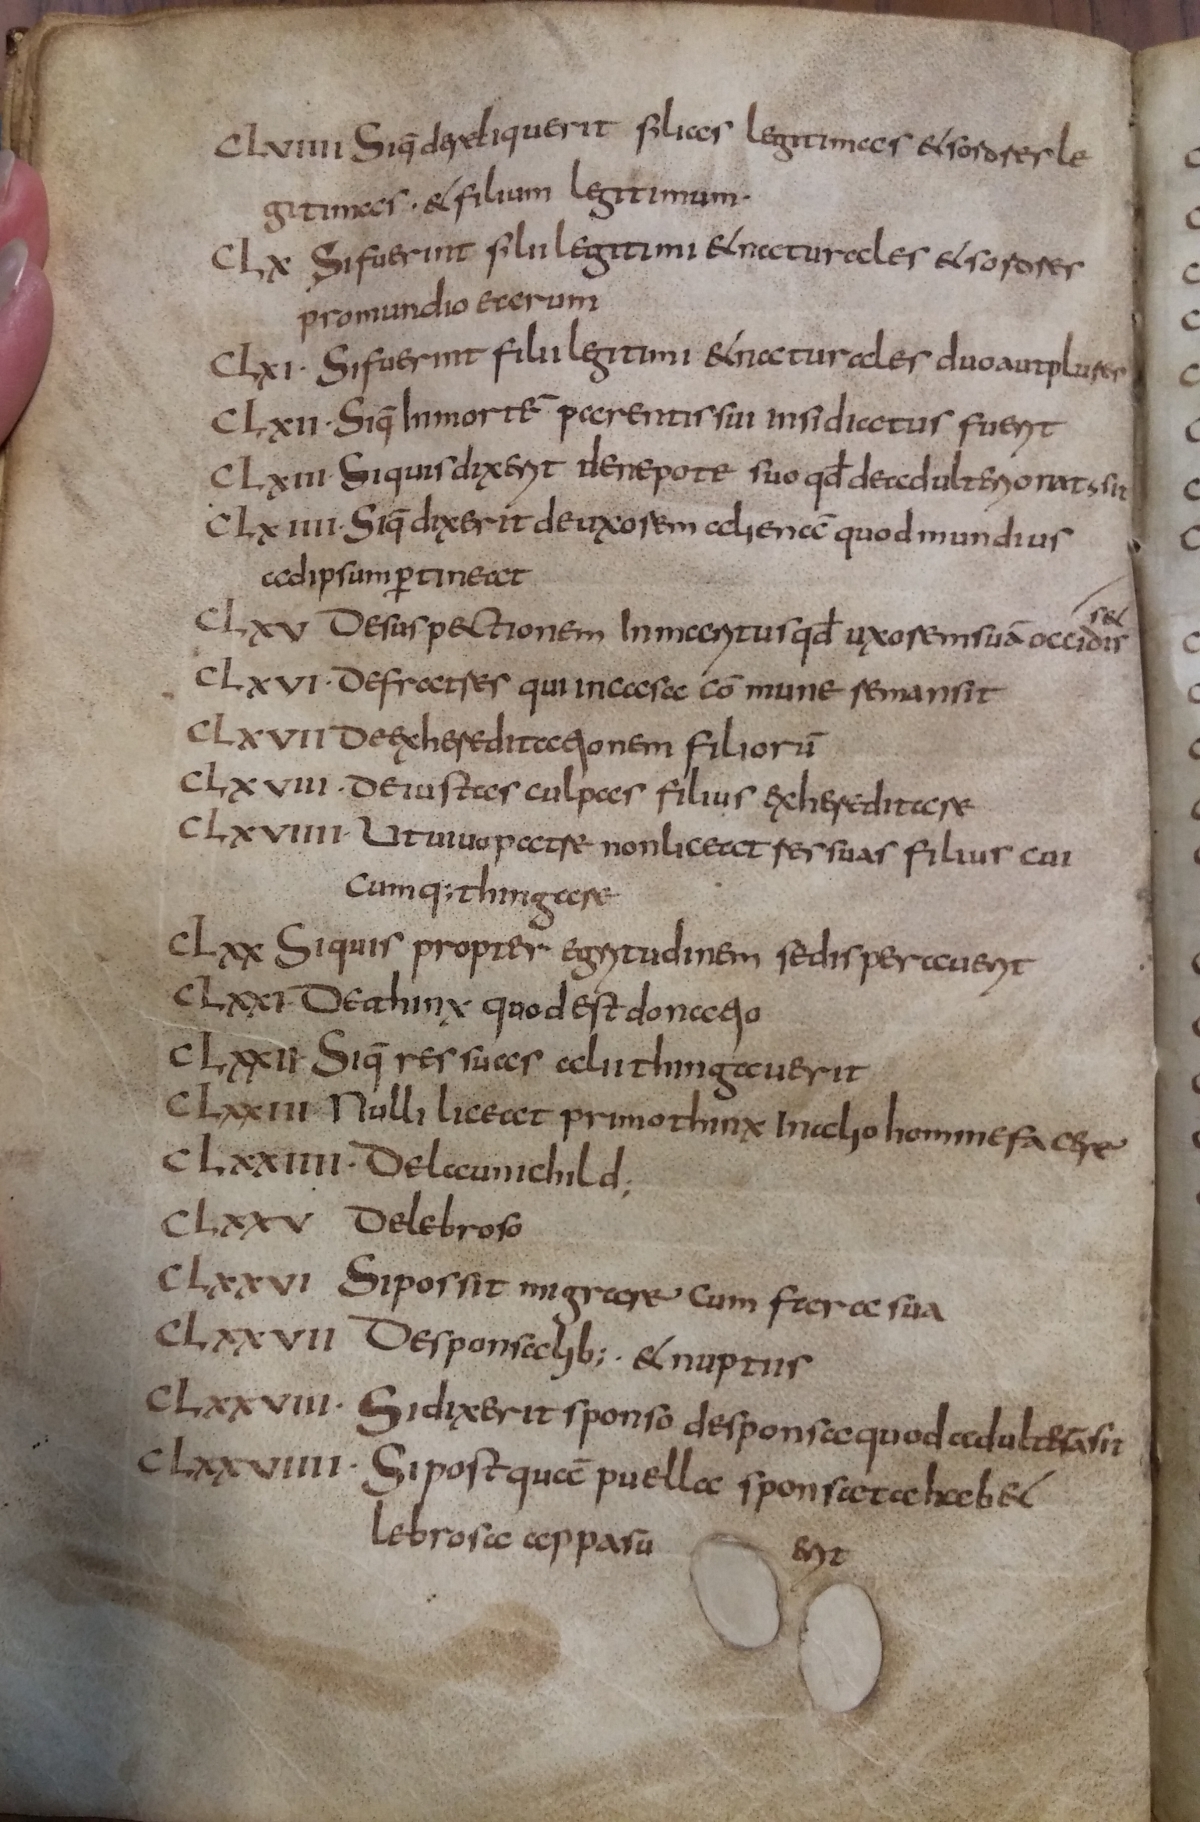 CLVIIII Siq̄ dereliquerit filias legitimas & sorores le
gitimas · & filium legitimum ·
CLX Si fuerint filii legitimi & naturales & sorores
pro mundio earum
CLXI · Si fuerint filii legitimi & naturales duo aut plures
CLXII · Siq̄ In mortē parentis sui insidiatus fuerit
CLXIII · Si quis dixerit de nepote suo qd̄ de adulterio nat; sit
CLXIIII · Siq̄ dixerit de uxorem alienā quod mundius
ad ipsum ꝑtineat
CLXV De suspectionem In maritus qd̄ uxorem suā occidis
s&
CLXVI · De fratres qui in casa cō mune remansit
CLXVII De exhereditationem filiorū
CLXVIII · De iustas culpas filius exhereditare
CLXVIIII · Ut uiuo patre non liceat res suas filius cui
cumq; thingare
CLXX Si quis propter egritudinem se disperauerit
CLXXI · De athinx quod est donatio
CLXXII · Siq̄ res suas alii thingauerit
CLXXIII Nulli liceat primo thinx In alio homine facere
CLXXIIII · De launichild;
CLXXV De lebroso
CLXXVI Si possit migrare cum fcara sua
CLXXVII De sponsalib; · & nuptus
CLXXVIII · Si dixerit sponso de sponsa quod adulterā sit
CLXXVIIII · Si postquā puella sponsata hab&
lebrosa apparu erit